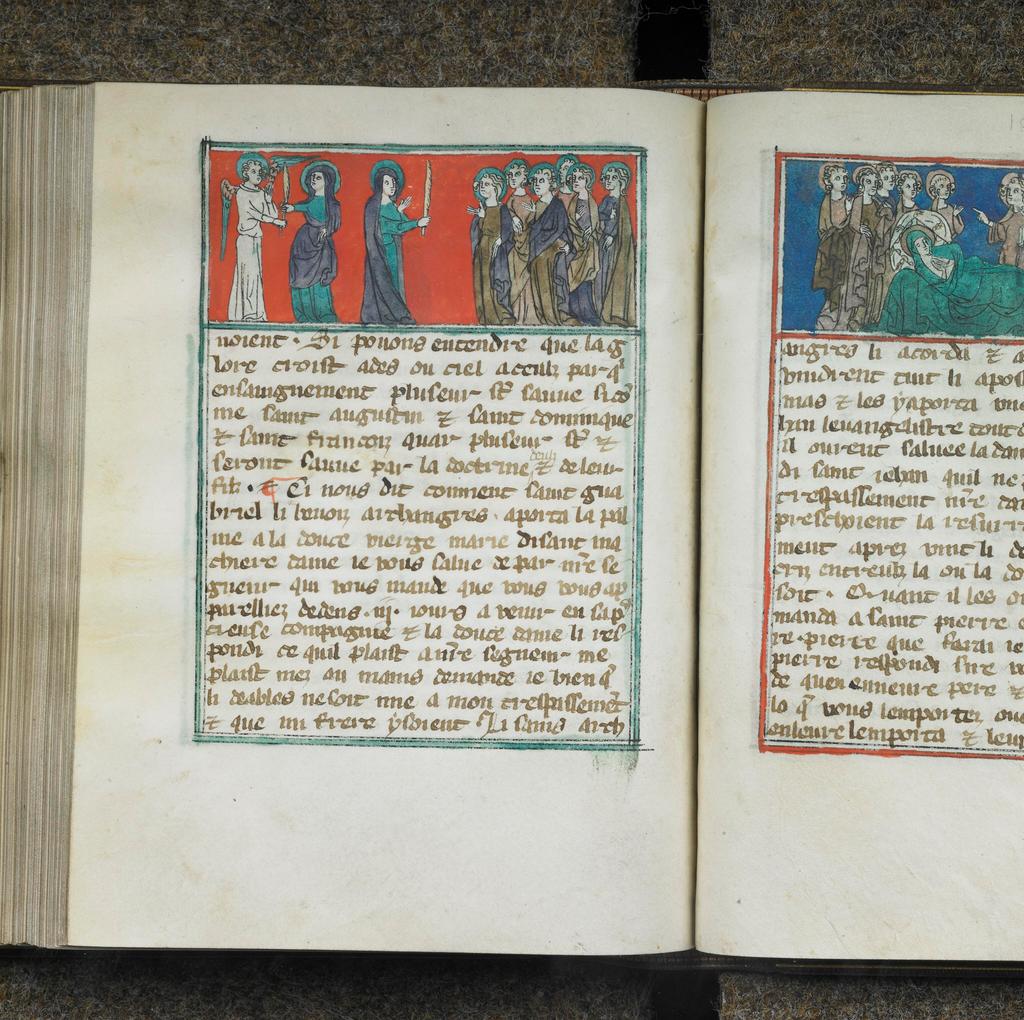 uoient . Si pouons entendre que la g
loire croist ades ou ciel a ceulz par q̃
ensaingnement pluseur sõt sauue sicõ
me saint augustin ⁊ saint dominique
⁊ saint francois quar pluseur sõt ⁊
seront sauue par la doctrine deulz ⁊ de leur
filz . Ci nous dit conment saint gua
briel li benois archangres . aporta la pal
me a la douce vierge marie disant ma
chiere dame ie vous salue de par nr̃e se
gneur qui vous mande que vous vous ap
pareilliez dedens .iij. iours a venir en sa p̃
cieuse compaignie ⁊ la douce dame li res
pondi ce quil plaist a nr̃e segneur me
plaist mez au mains demande ie bien q̃
li deables ne soit mie a mon trespassemẽt
⁊ que mi frere y soient Li sains arch
angres li acorda ⁊ a
vindrent tuit li apos
mas ⁊ les y aporta une
han leuangelistre tout
il ourent saluee la dam
di saint iehan quil ne
trespassement nr̃e dam
preschoient la resurre
ment aprez vint li
crist entreulz la ou la do
soit . Quant il les
manda a saint pierre
re pierre que ferai ie
pierre respondi sire
de quen enneure pere ⁊
lo q̃ vous lemportez
enleure lemporta ⁊ leur